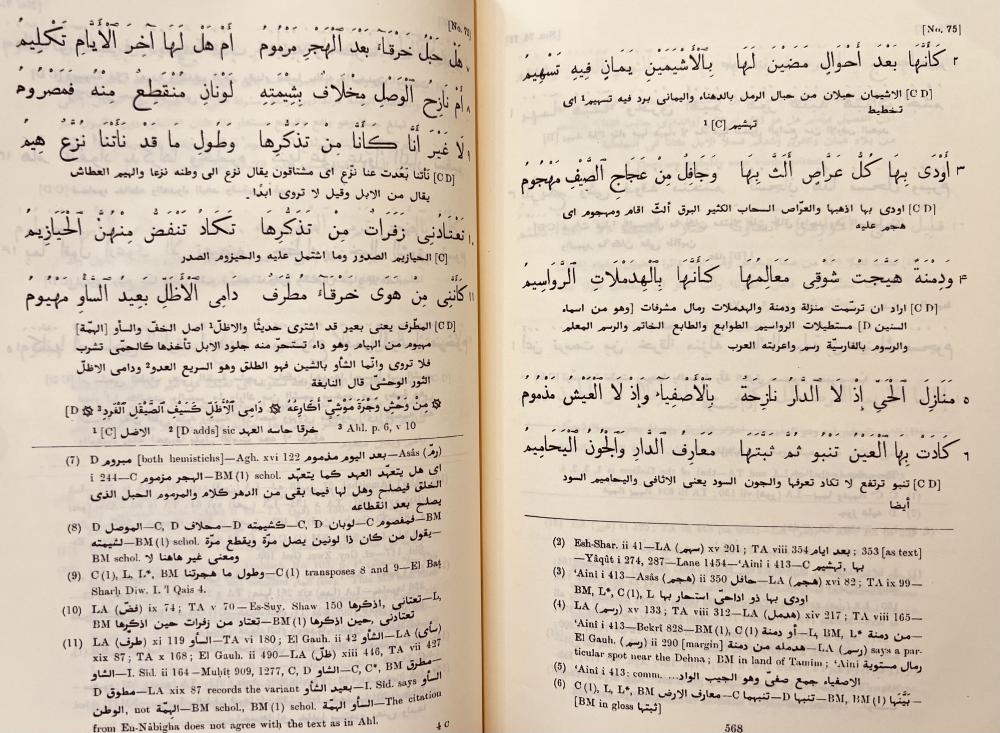 [No. 75]
٢ كَأَنَّهَا بَعْدَ أَحْوَالٍ مَضَيْنَ لَهَا بِٱلْأَشْيَمَيْنِ يَمَانٍ فِيهِ تَسْهِيمُ
[C D] الاشيمان حبلان من حبال الرمل بالدهناء واليمانى برد فيه تسهيم¹ اى
تخطيط
¹ [C] تهشيم
٣ أَوْدَى بِهَا كُلُّ عَرَّاصٍ أَلَثَّ بِهَا وَجَافِلٌ مِنْ عَجَاجِ ٱلصَّيْفِ مَهْجُومُ
[C D] اودى بها اذهبها والعرّاص السحاب الكثير البرق ألثّ اقام ومهجوم اى
هجم عليه
۴ وَدِمْنَةٌ هَيَّجَتْ شَوْقِى مَعَالِمُهَا كَأَنَّهَا بِٱلْهِدَمْلَاتِ ٱلرَّوَاسِيمُ
[C D] اراد ان ترسّمت منزلة ودمنة والهدملات رمال مشرفات [وهو من اسماء
السنين D] مستطيلات الرواسيم الطوابع والطابع الخاتم والرسم المعلم
والرسوم بالفارسيّة رسم واعربته العرب
٥ مَنَازِلَ ٱلْحَىِّ إِذْ لَا ٱلدَّارُ نَازِحَةٌ بِٱلْأَصْفِيَاءِ وَإِذْ لَا ٱلْعَيْشُ مَذْمُومُ
٦ كَادَتْ بِهَا ٱلْعَيْنُ تَنْبُو ثُمَّ ثَبَّتَهَا مَعَارِفُ ٱلدَّارِ وَٱلْجُونُ ٱلْيَحَامِيمُ
[C D] تنبو ترتفع لا تكاد تعرفها والجون السود يعنى الاثافى واليحاميم السود
أيضا
(2) Esh-Shar. ii 41—LA (سهم) xv 201; TA viii 354 بعد ايام; 353 [as text]
—Yâqût i 274, 287—Lane 1454—'Aini i 413—C بها تهشيم,
(3) 'Aini i 413—Asâs (هجم) ii 350 حافل—LA (هجم) xvi 82; TA ix 99—
BM, L*, C (1), L اودى بها ذو اداحىّ استحار بها
(4) LA (رسم) xv 133; TA viii 312—LA (هدمل) xiv 217; TA viii 165—
'Aini i 413—Bekrî 828—BM (1), C (1) أو دمنة—L, BM, L* من دمنة—
El Gauh. (رسم) ii 290 [margin] هدمله من دمنة—LA (رسم) says a par-
ticular spot near the Dehna; BM in land of Tamim; 'Aini رمال مستوية
(5) 'Aini i 413: comm. ...الاصفياء جمع صفىّ وهو الجيب الواد
(6) C (1), L, L*, BM معارف الارض—C تنبيهما—D تنبها—BM, BM (1) بَيَّنَها
[BM in gloss ثبتها]
568
٧ هَلْ حَبْلُ خَرْقَآءَ بَعْدَ ٱلْهَجْرِ مَرْمُومُ أَمْ هَلْ لَهَا آخِرَ ٱلْأَيَّامِ تَكْلِيمُ
٨ أَمْ نَازِحُ ٱلْوَصْلِ مِخْلَافٌ بِشِيمَتِهِ لَوْنَانِ مُنْقَطِعٌ مِنْهُ فَمَصْرُومُ
٩ لَا غَيْرَ أَنَّا كَأَنَّا مِنْ تَذَكُّرِهَا وَطُولِ مَا قَدْ نَأَتْنَا نُزَّعٌ هِيمُ
[C D] نأتنا بَعُدت عنا نزّع اى مشتاقون يقال نزع الى وطنه نزعا والهيم العطاش
يقال من الابل وقيل لا تروى أبدًا.
١٠ تَعْتَادُنِى زَفَرَاتٌ مِنْ تَذَكُّرِهَا تَكَادُ تَنْفَضُّ مِنْهُنَّ ٱلْحَيَازِيمُ
[C] الحيازيم الصدور وما اشتمل عليه والحيزوم الصدر
١١ كَأَنَّنِى مِنْ هَوَى خَرْقَآءَ مُطَّرَفٌ دَامِى ٱلْأَظَلِّ بَعِيدُ ٱلسَّأْوِ مَهْيُومُ
[C D] المطّرف يعنى بعير قد اشترى حديثًا والاظلّ¹ اصل الخفّ والسأو [الهمّة]
مهيوم من الهيام وهو داء تستحرّ منه جلود الابل تأخذها كالحمّى تشرب
فلا تروى وانّما الشأو بالشين فهو الطلق وهو السريع العدو² ودامى الاظلّ
الثور الوحشىّ قال النابغة
۞ مِنْ وَحْشِ وَجْرَةَ مَوْشِىٍّ أَكَارِعُهُ ۞ دَامِى ٱلْأَظَلِّ كَسَيْفِ ٱلصَّيْقَلِ ٱلْفَرَدِ³ ۞ [D
¹ [C] الاضل ² [D adds] sic خرقا حاسه العهد ³ Ahl. p. 6, v 10
(7) D مبروم [both hemistichs]—Agh. xvi 122 بعد اليوم مذموم—Asâs (رمّ)
i 244—C الهجر مزموم—BM (1) schol. اى هل يتعهّد العهد كما يتعهّد
الخلق فيصلح وهل لها فيما بقى من الدهر كلام والمرموم الحبل الذى
يصلح بعد انقطاعه
(8) D الموصل—C, D محلاف—D كشيمته—C, D لوبان—C فمفصوم—BM
لشيمته—BM (1) schol. يقول من كان ذا لونين يصل مرّة ويقطع مرّة—
BM schol. ومعنى غير هاهنا لا
(9) C (1), L, L*, BM وطول ما هجرتنا—C (1) transposes 8 and 9—El Baṭ
Sharḥ Diw. I. 'l Qais 4.
(10) LA (فضّ) ix 74; TA v 70—Es-Suy. Shaw 150 تعتانى ,اذكرها—L,
BM تعتاد من زفرات حين اذكرها—BM (1) تعتادنى ,حين اذكرها
(11) LA (طرف) xi 119 السأو—TA vi 180; El Gauh. ii 42 الشأو—LA (سأى)
xix 87; TA x 168; El Gauh. ii 490—LA (ظلّ) xiii 446, TA vii 427
الشاو—I. Sîd. ii 164—Muḥiṭ 909, 1277, C, D الشاو—C, C*, BM مطرق—
D مطوق—LA xix 87 records the variant بعيد الشأو—I. Sîd. says السأو
الوطن, not الهمّة—BM schol., BM (1) schol. السأو الهمّة—The citation
from En-Nâbigha does not agree with the text as in Ahl.
4 C